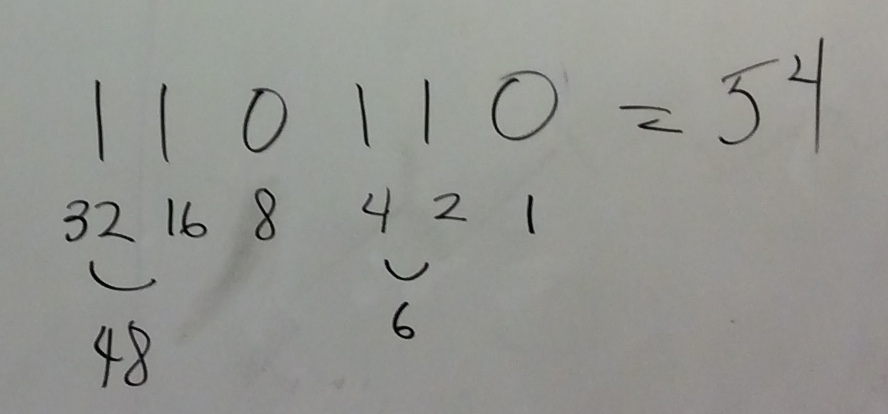 1 1 0 1 1 0 = 54
32 16 8 4 2 1
48 6